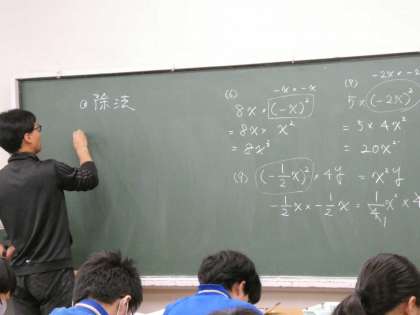 ⊙ 除法
(6) -x × -x
8x × (-x)²
= 8x × x²
= 8x³
(8) -2x × -2
5 × (-2x)²
= 5 × 4x²
= 20x²
(9) (-1/2 x)² × 4y = x²y
-1/2 x × -1/2 x = 1/4 x² × 4
1